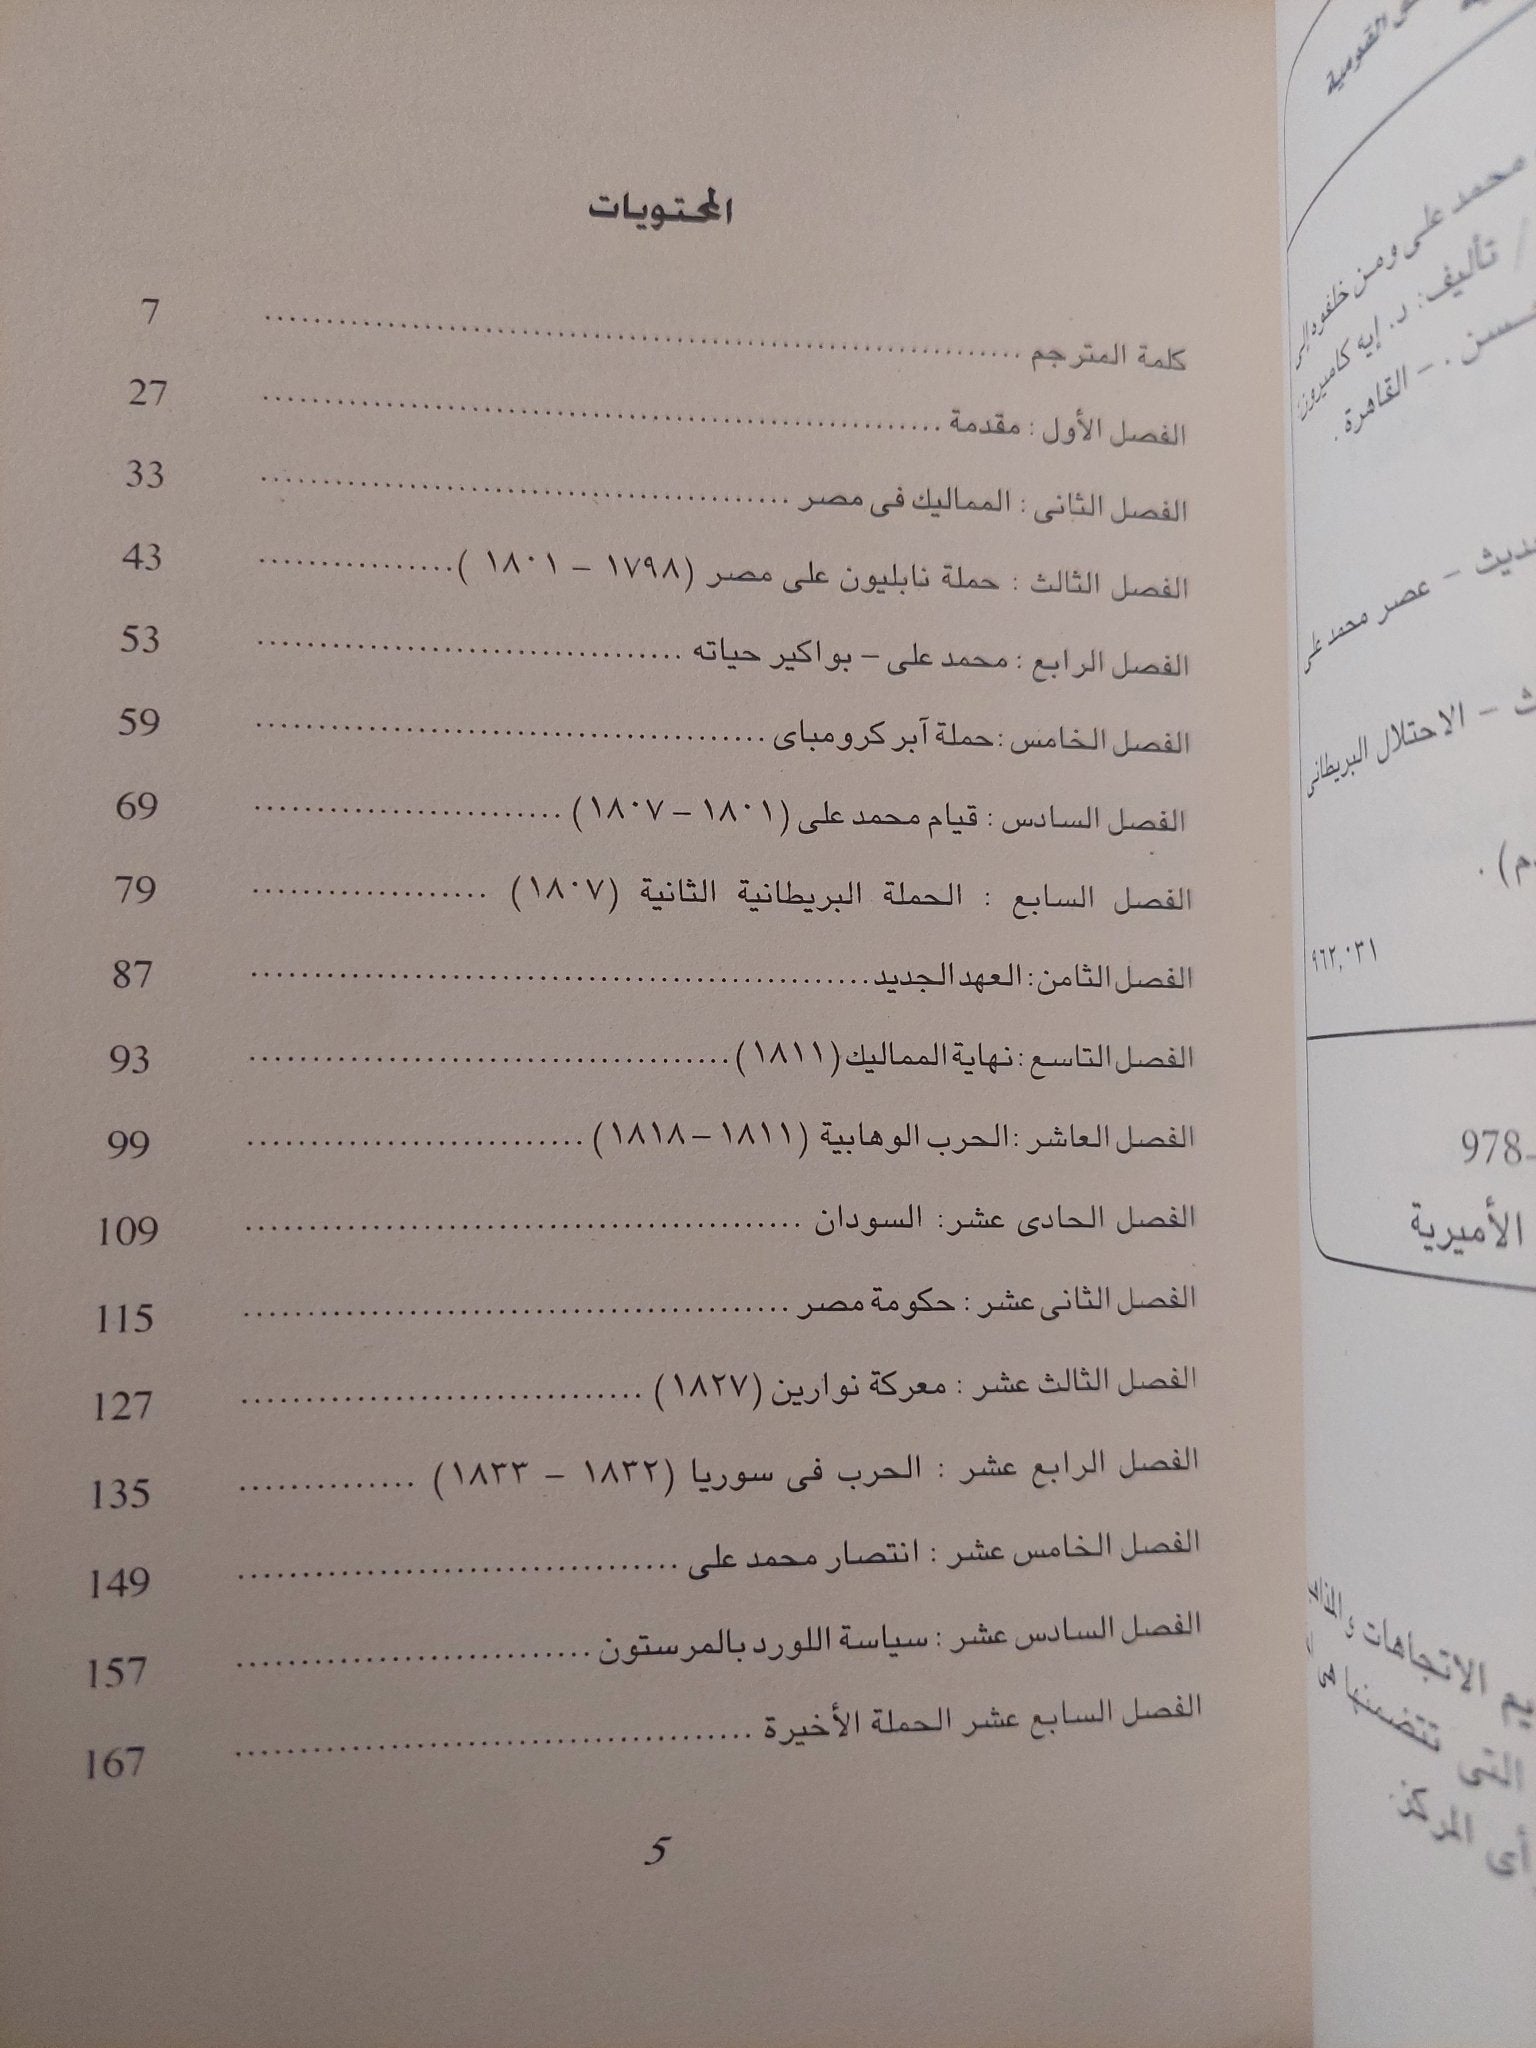 المحتويات
كلمة المترجم .......... 7
الفصل الأول : مقدمة .......... 27
الفصل الثانى : المماليك فى مصر .......... 33
الفصل الثالث : حملة نابليون على مصر (١٧٩٨ – ١٨٠١ ) .......... 43
الفصل الرابع : محمد على – بواكير حياته .......... 53
الفصل الخامس : حملة آبر كرومباى .......... 59
الفصل السادس : قيام محمد على (١٨٠١ – ١٨٠٧) .......... 69
الفصل السابع : الحملة البريطانية الثانية (١٨٠٧) .......... 79
الفصل الثامن : العهد الجديد .......... 87
الفصل التاسع : نهاية المماليك (١٨١١) .......... 93
الفصل العاشر : الحرب الوهابية (١٨١١ – ١٨١٨) .......... 99
الفصل الحادى عشر : السودان .......... 109
الفصل الثانى عشر : حكومة مصر .......... 115
الفصل الثالث عشر : معركة نوارين (١٨٢٧) .......... 127
الفصل الرابع عشر : الحرب فى سوريا (١٨٣٢ – ١٨٣٣) .......... 135
الفصل الخامس عشر : انتصار محمد على .......... 149
الفصل السادس عشر : سياسة اللورد بالمرستون .......... 157
الفصل السابع عشر الحملة الأخيرة .......... 167
5
القومية
محمد على ومن خلفوه إلى
/ تأليف: د. إيه كاميرون
القاهرة .
– عصر محمد على
– الاحتلال البريطانى
٩٦٢,٠٣١
978-
الأميرية
الاتجاهات و
التى تتضمنها